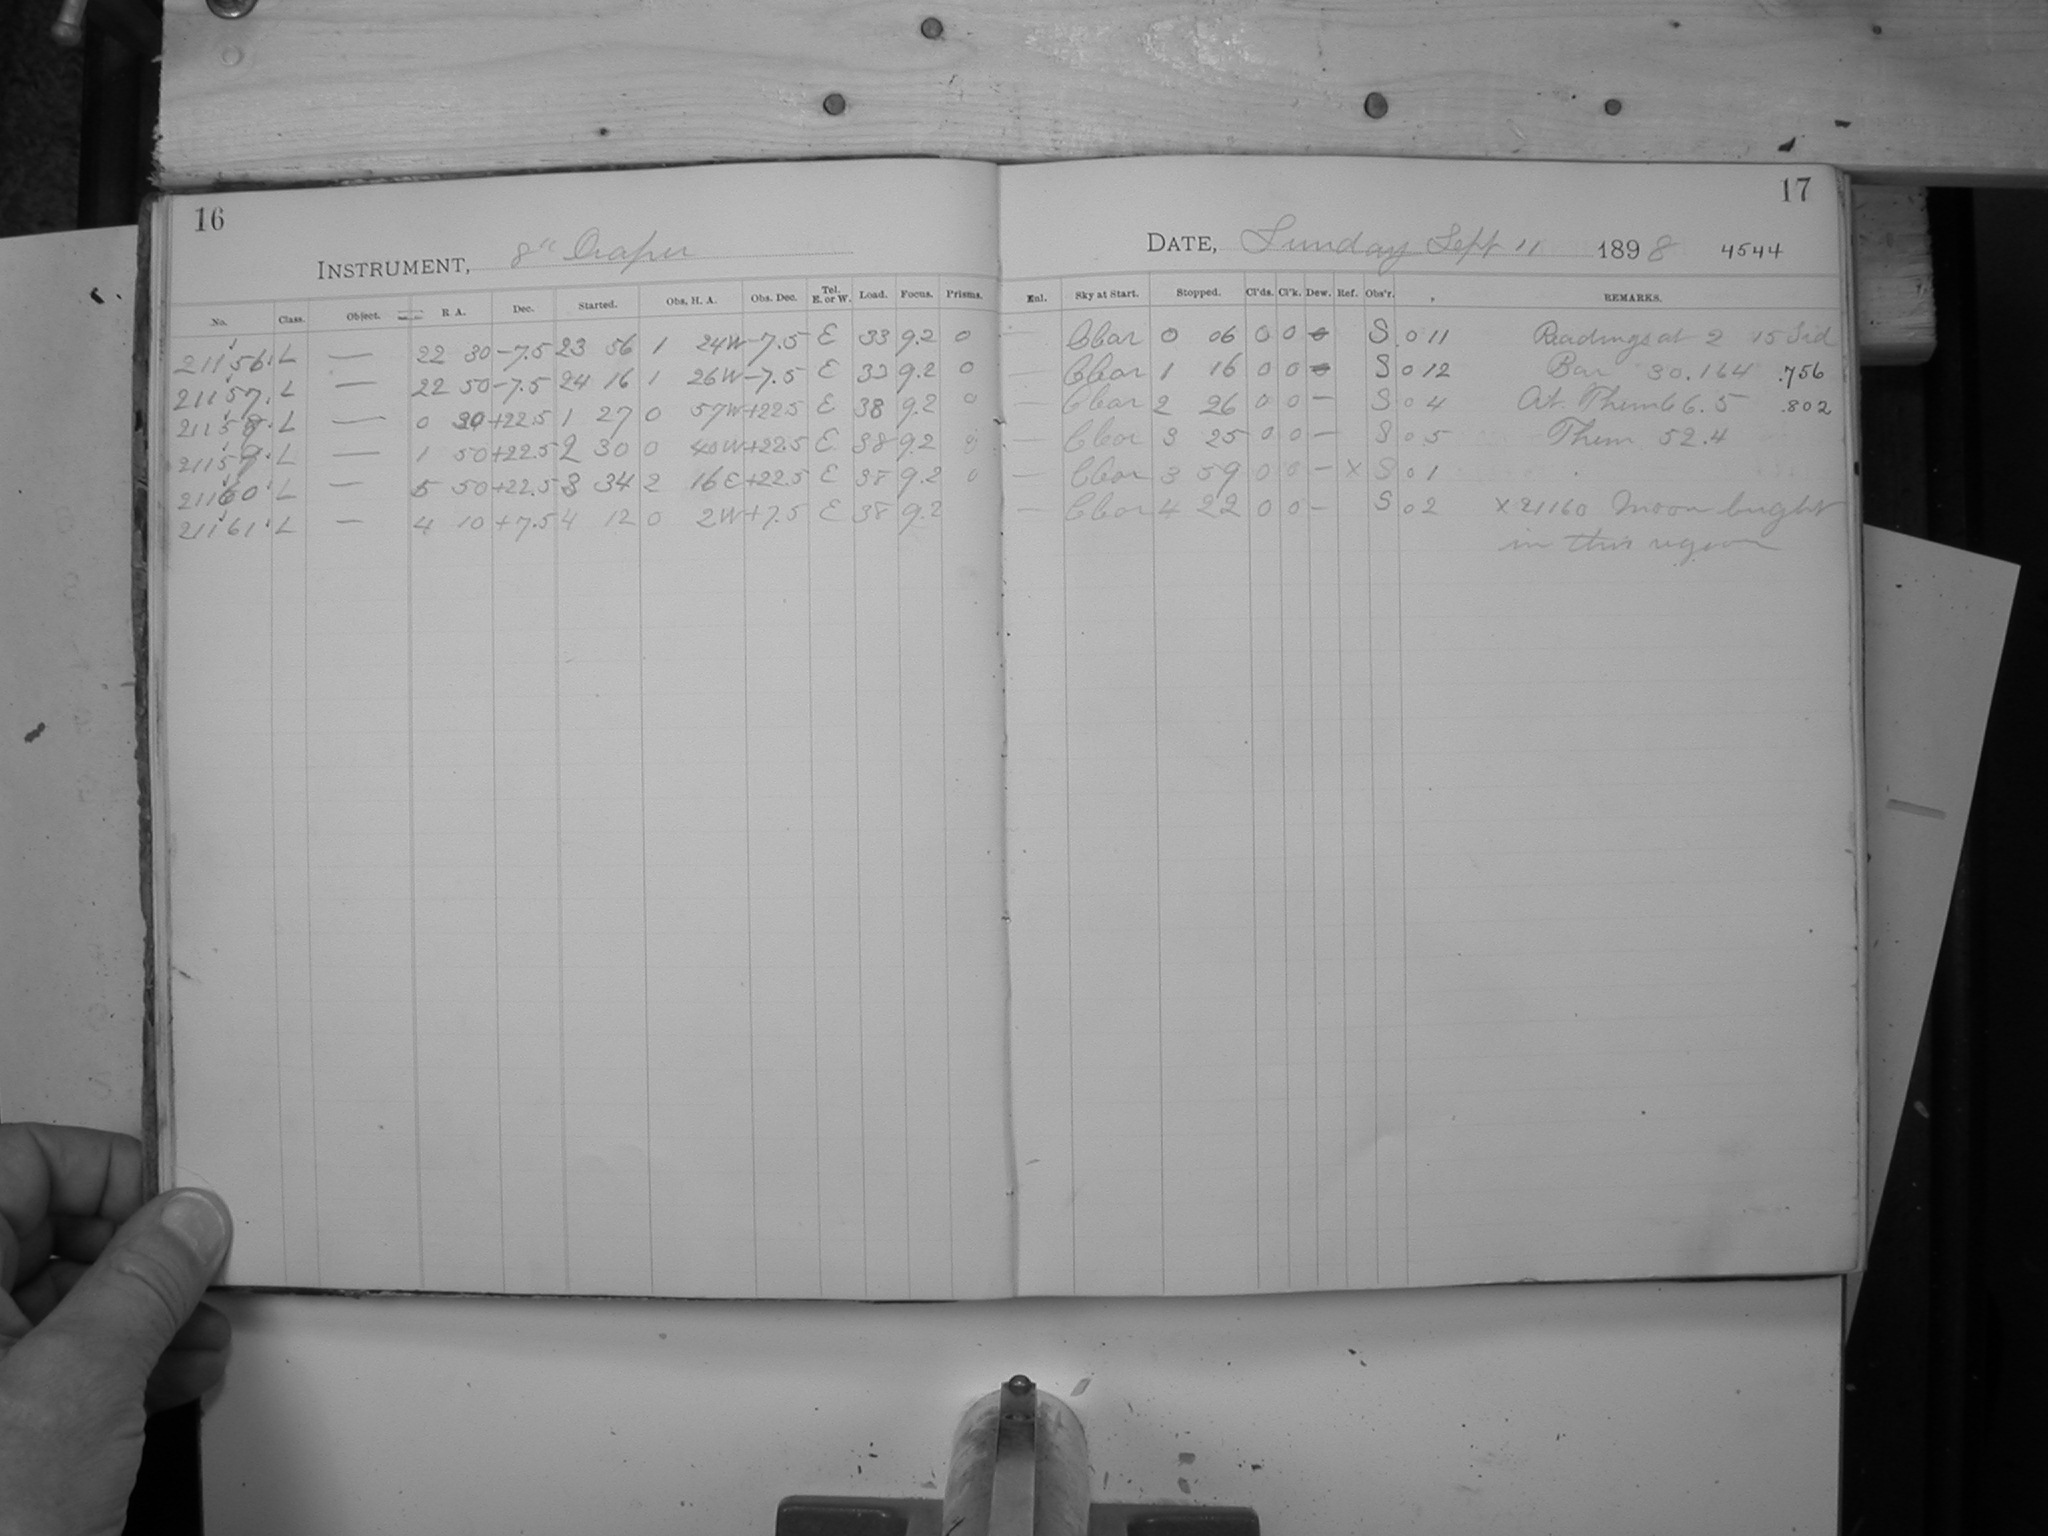 16
INSTRUMENT, 8" Draper
No. Class. Object. R A. Dec. Started. Obs. H. A. Obs. Dec. Tel. E. or W. Load. Focus. Prisms.
21156 L — 22 30 -7.5 23 56 1 24W -7.5 E 33 9.2 0
21157 L — 22 50 -7.5 24 16 1 26W -7.5 E 33 9.2 0
21158 L — 0 30 +22.5 1 27 0 57W +22.5 E 38 9.2 0
21159 L — 1 50 +22.5 2 30 0 40W +22.5 E 38 9.2 0
21160 L — 5 50 +22.5 3 34 2 16E +22.5 E 38 9.2 0
21161 L — 4 10 +7.5 4 12 0 2W +7.5 E 38 9.2
17
DATE, Sunday Sept 11 1898 4544
Enl. Sky at Start. Stopped. Cl'ds. Cl'k. Dew. Ref. Obs'r. REMARKS.
— Clear 0 06 0 0 0 S 011 Readings at 2 15 Sid
— Clear 1 16 0 0 0 S 012 Bar 30.164 .756
— Clear 2 26 0 0 — S 04 At. Them 66.5 .802
— Clear 3 25 0 0 — S 05 Them 52.4
— Clear 3 59 0 0 — X S 01
— Clear 4 22 0 0 — S 02 X 21160 Moon bright
in this region